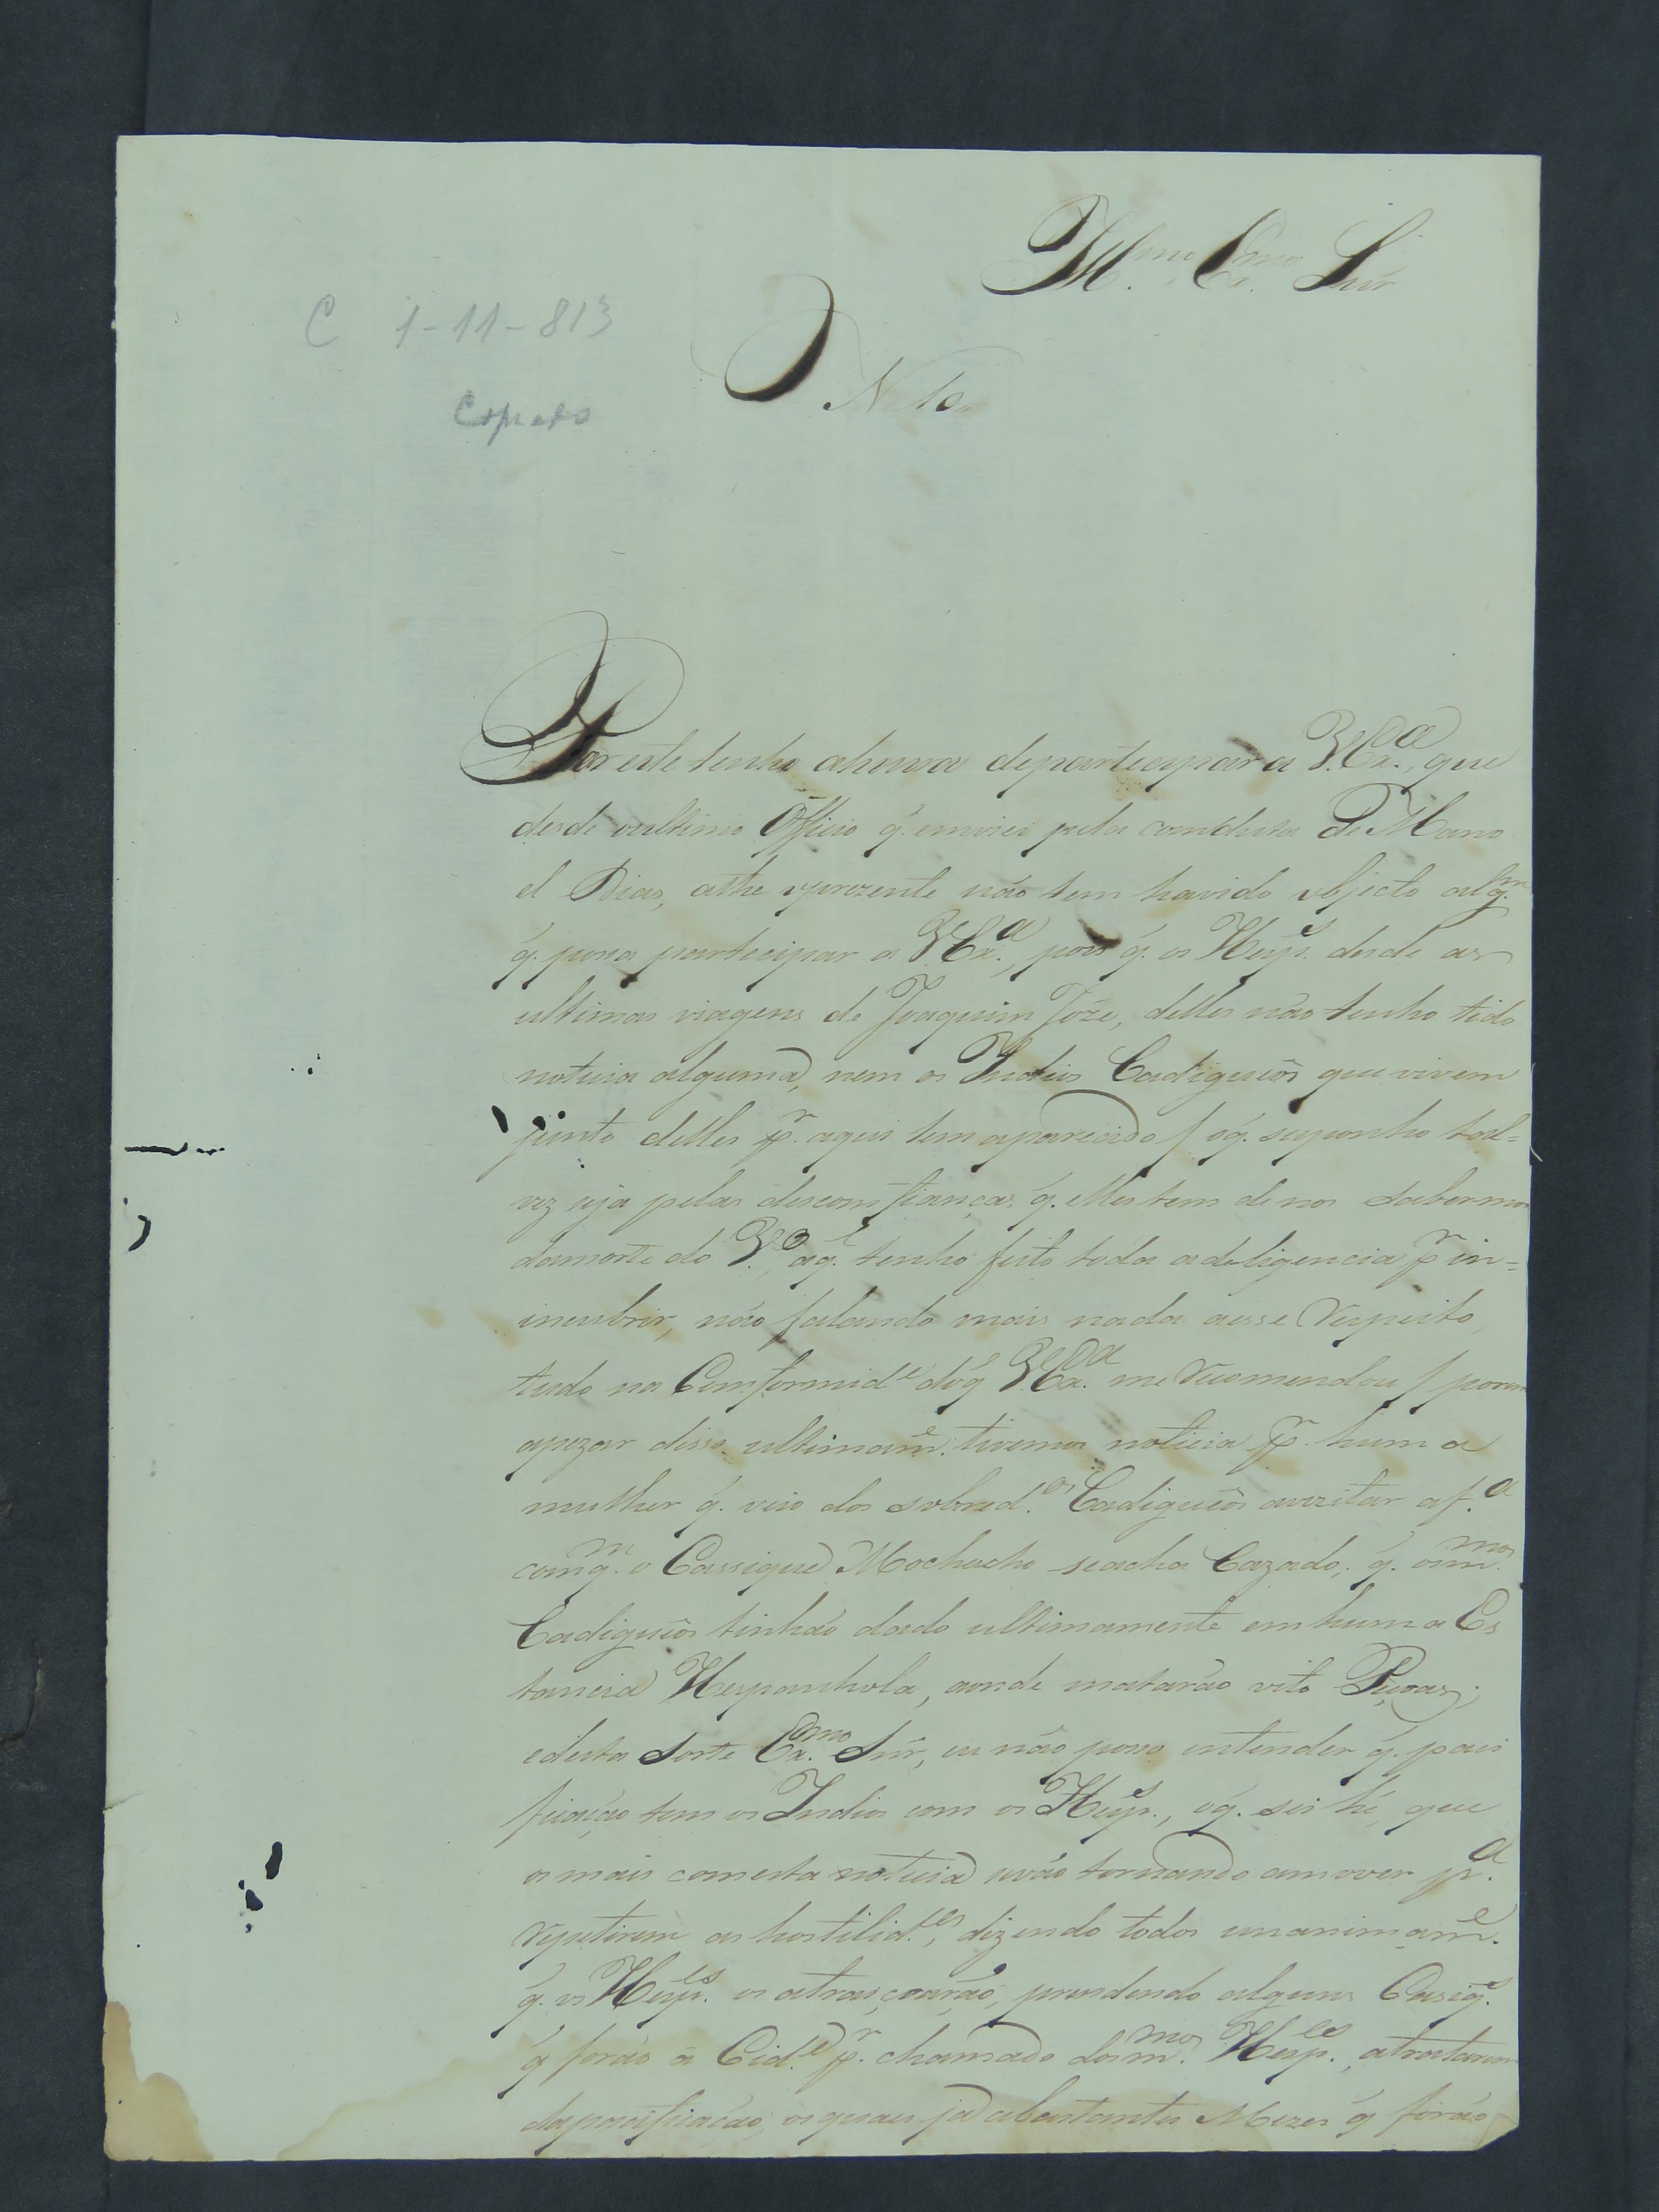 Ill.mo Ex.mo Snr
C 1-11-813
N 10
Copiado
Por este tenho ahonra departecipar a V. Ex.a, que
desde oultimo Officio q̃. enviei pela conducta de Mano
el Dias, athe oprezente não tem havido objecto algm̃.
q̃. possa partecipar a V. Ex.a, pois q̃. os Hesp.s desde as
ultimas viagens de Joaquim Joze, delles não tenho tido
noticia alguma, nem os Indios Cadiguêos que vivem
junto delles p.r aqui tem aparecido / oq̃. suponho tal=
vez seja pelas desconfianças q̃. elles tem de nos sabermos
damorte do V.o, aq̃l tenho feito toda adeligencia p.r in=
incubrir, não falando mais nada aesse respeito,
tudo na Comformid.e doq̃ V. Ex.a me recomendou / porem
apezar disso ultimam.e tivemos noticia p.r huma
mulher q̃. veio dos sobred.os Cadiguêos avezitar af.a
com q.m o Cassique Mochucho seacha Cazado, q̃. os m.mos
Cadiguêos tinhão dado ultimamente em huma Es
tancia Hespanhola, aonde matarão oito Peçoas;
edesta sorte Ex.mo Snr, eu não posso entender q̃. paci
ficação tem os Indios com os Hesp.s, oq̃. sei hé, que
os mais comesta noticia seváo tornando amover p.a
repetirem as hostilid.es, dizendo todos unanimam.e
q̃. os Hesp.es os atraiçoarão, prendendo alguns Casiq.s
q̃ forão a Cid.e p.r chamado dos m.mos Hesp.es, atratarem
dapacificação, os quais ja abastantes Mezes q̃ forão